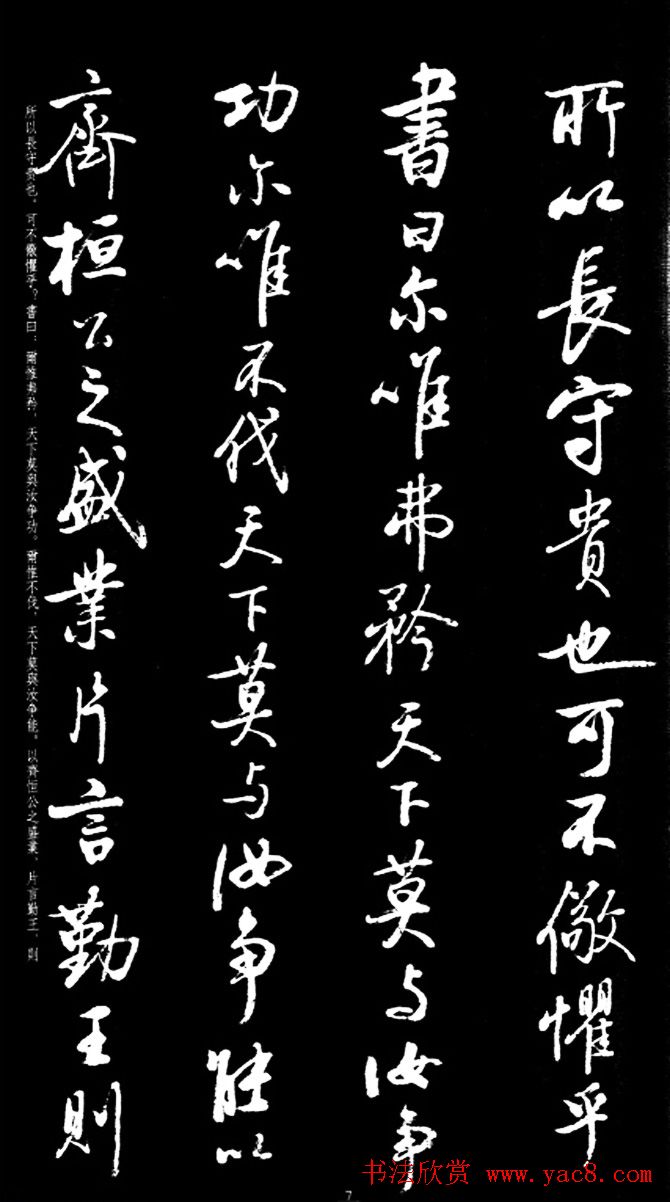 所以長守貴也可不儆懼乎
書曰尔唯弗矜天下莫与汝争
功尔唯不伐天下莫与汝争能以
齊桓公之盛業片言勤王則
所以長守貴也，可不儆懼乎？書曰：爾惟弗矜，天下莫與汝爭功。爾惟不伐，天下莫與汝爭能。以齊桓公之盛業，片言勤王，則
7
书法欣赏 www.yac8.com